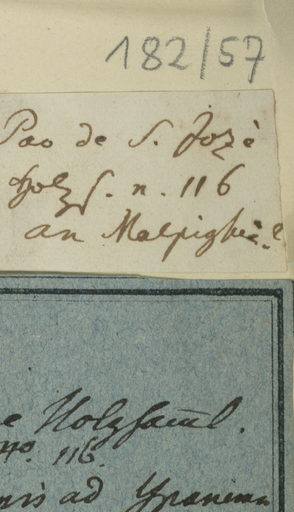 182/57
Pao de S. Jozè
Holz S. n. 116
an Malpighia?
e Holzsam̅l.
No. 116.
nis ad Ypanema